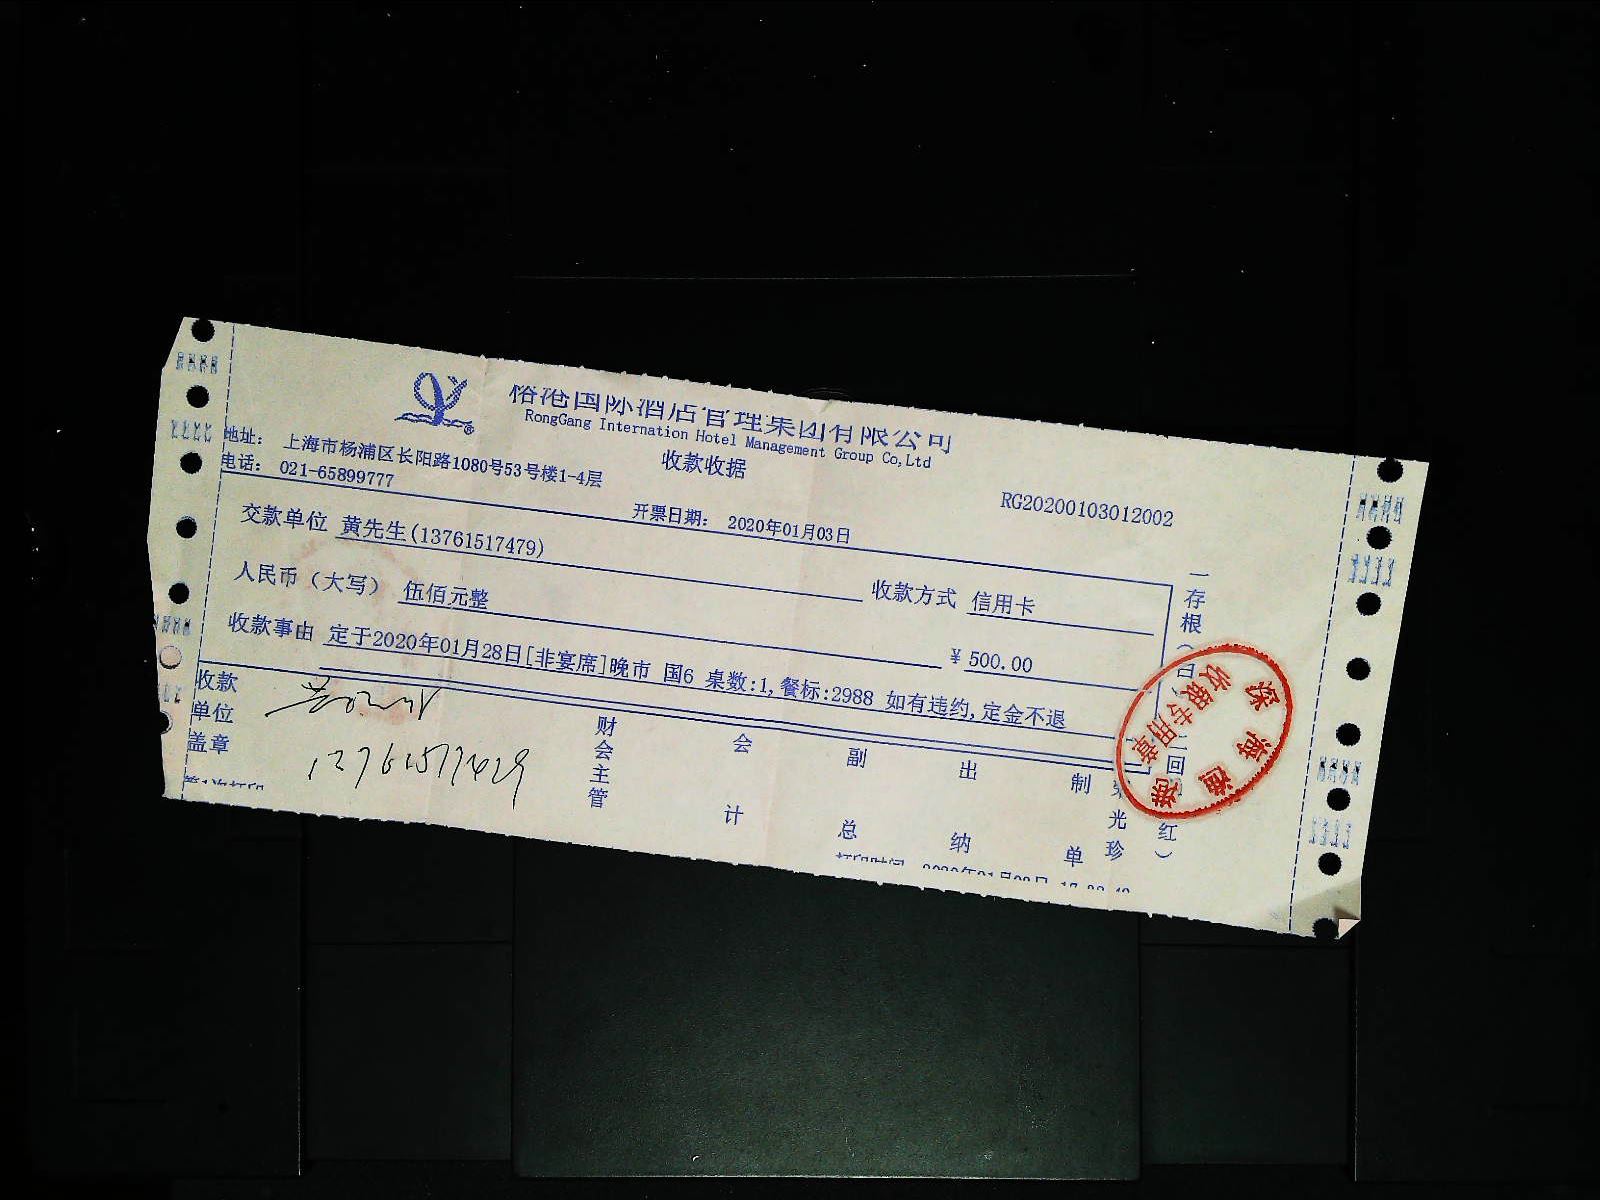 国际酒店管理集团有限公司
RongGang Internation Hotel Management Group Co,Ltd
收款收据
地址: 上海市杨浦区长阳路1080号53号楼1-4层
电话: 021-65899777
开票日期: 2020年01月03日
RG202001030​12002
交款单位 黄先生(13761517479)
收款方式 信用卡
人民币（大写） 伍佰元整
¥ 500.00
收款事由 定于2020年01月28日[非宴席]晚市 国6 桌数:1,餐标:2988 如有违约,定金不退
收款单位盖章
财会主管
会计
副总
出纳
制单
光珍
一存根（白）
二回
红）
深海渔
收银专用章